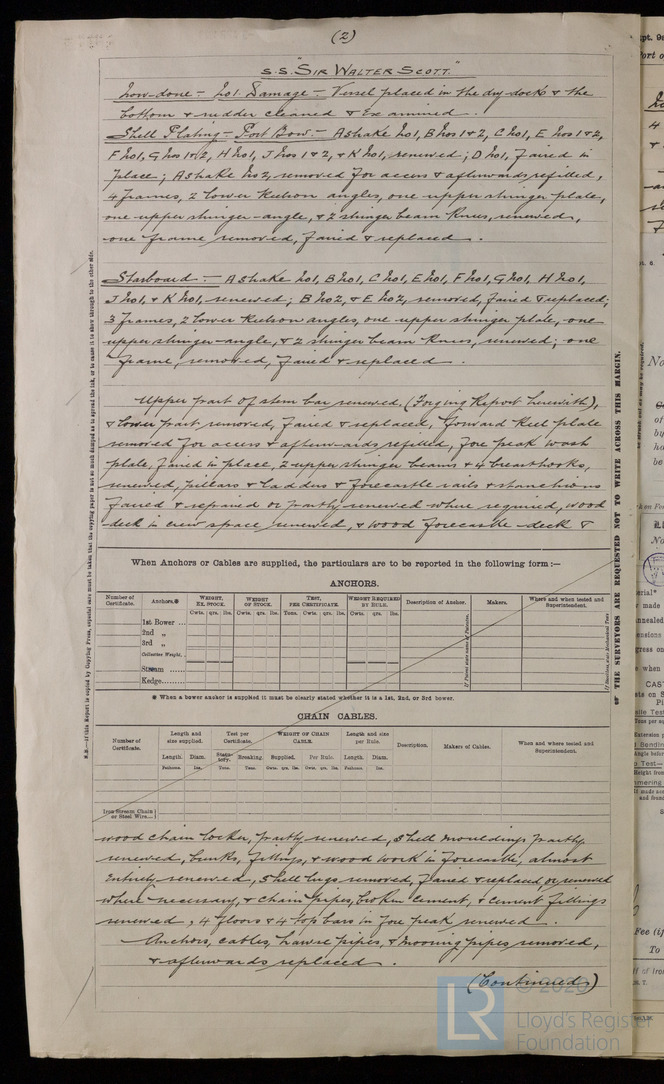 (2)
S.S. "SIR WALTER SCOTT."
Now done - No1. Damage - Vessel placed in the dry dock & the
bottom & rudder cleaned & examined.
Shell Plating - Port Bow:- A Shake No1, B Nos 1 & 2, C No1, E Nos 1 & 2,
F No1, G Nos 1 & 2, H No1, J Nos 1 & 2, & K No1, renewed; D No1, Faired in
place; A Shake No2, removed for access & afterwards refitted,
4 frames, 2 lower Keelson angles, one upper stringer plate,
one upper stringer-angle, & 2 stringer beam knees, renewed,
one frame removed, faired & replaced.
Starboard:- A Shake No1, B No1, C No1, E No1, F No1, G No1, H No1,
J No1, & K No1, renewed; B No2, & E No2, removed, faired & replaced;
3 frames, 2 lower Keelson angles, one upper stringer plate, one
upper stringer-angle, & 2 stringer beam knees, renewed; one
frame, removed, faired & replaced.
Upper part of stem bar renewed, (Forging Report herewith),
& lower part removed, faired & replaced, forward keel plate
removed for access & afterwards refitted, fore peak wash
plate, faired in place, 2 upper stringer beams & 4 breasthooks,
renewed, pillars & ladders & forecastle rails & stanchions
faired & repaired or partly renewed where required, wood
deck in crew space renewed, & wood forecastle deck &
When Anchors or Cables are supplied, the particulars are to be reported in the following form:—
ANCHORS.
Number of Certificate. Anchors.* WEIGHT, EX. STOCK. WEIGHT OF STOCK. TEST, PER CERTIFICATE. WEIGHT REQUIRED BY RULE. Description of Anchor. Makers. Where and when tested and Superintendent.
Cwts. qrs. lbs. Cwts. qrs. lbs. Tons. Cwt. qrs. lbs. Cwts. qrs. lbs.
1st Bower ...
2nd „
3rd „
Collective Weight.
Stream ......
Kedge......
* When a bower anchor is supplied it must be clearly stated whether it is a 1st, 2nd, or 3rd bower.
CHAIN CABLES.
Number of Certificate. Length and size supplied. Test per Certificate. WEIGHT OF CHAIN CABLE. Length and size per Rule. Description. Makers of Cables. When and where tested and Superintendent.
Length. Diam. Statutory. Breaking. Supplied. Per Rule. Length. Diam.
Fathoms. Ins. Tons. Tons. Cwts. qrs. lbs. Cwts. qrs. lbs. Fathoms. Ins.
Iron Stream Chain
or Steel Wire...
wood chain locker, partly renewed, shell mouldings partly
renewed, bunks, fittings, & wood work in forecastle, almost
entirely renewed, shell lugs removed, faired & replaced, or renewed
where necessary, & chain pipes, broken cement, & cement fillings
renewed, 4 floors & 4 top bars in fore peak renewed.
Anchors, cables, hawse pipes, & mooring pipes removed,
& afterwards replaced.
(Continued)
N.B.—If this Report is copied by Copying Press, especial care must be taken that the copying paper is not so much damped as to spread the ink, or to cause it to show through to the other side.
THE SURVEYORS ARE REQUESTED NOT TO WRITE ACROSS THIS MARGIN.
LR © 2020
Lloyd's Register
Foundation